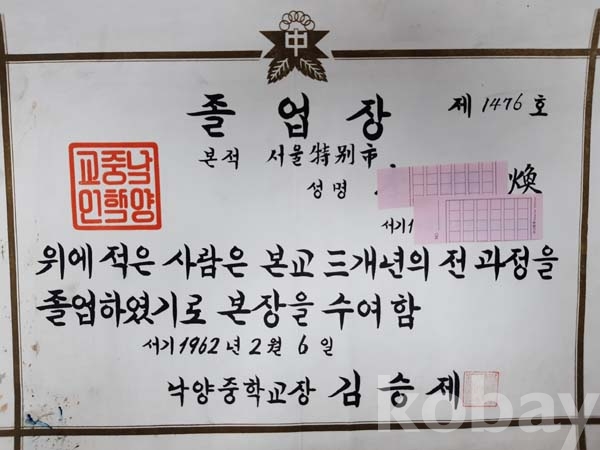 中
졸업장
제 1476 호
본적 서울特別市
성명 煥
서기1
위에 적은 사람은 본교 三개년의 전 과정을
졸업하였기로 본장을 수여 함
서기 1962 년 2 월 6 일
낙양중학교장 김승제
낙양
중학
교인
kobay